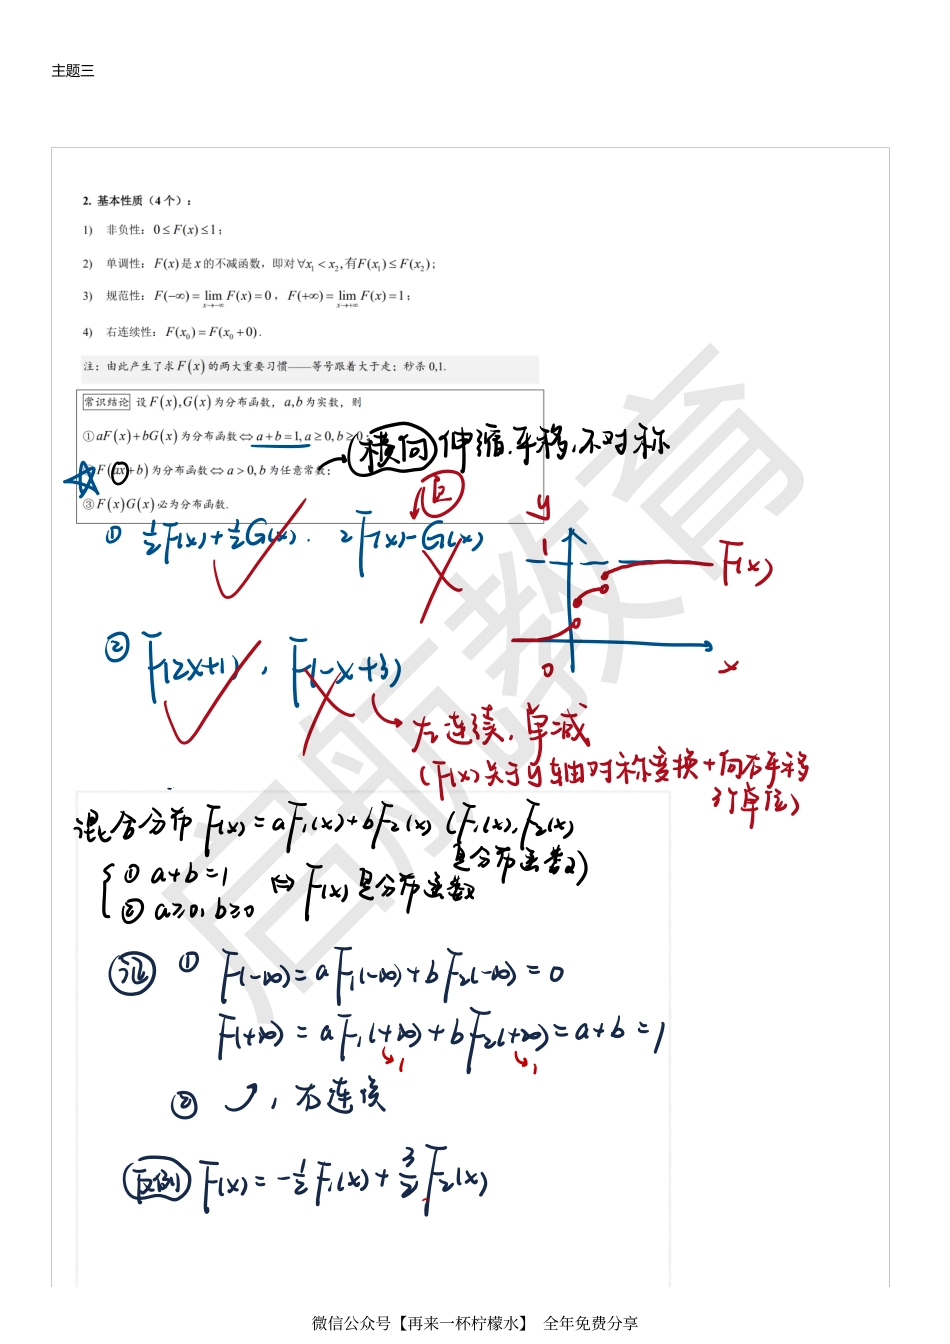 主题三
2. 基本性质（4 个）：
1) 非负性：0≤F(x)≤1；
2) 单调性：F(x)是x的不减函数，即对∀x₁<x₂,有F(x₁)≤F(x₂)；
3) 规范性：F(−∞)=lim F(x)=0，F(+∞)=lim F(x)=1；
x→−∞ x→+∞
4) 右连续性：F(x₀)=F(x₀+0).
注：由此产生了求F(x)的两大重要习惯——等号跟着大于走；秒杀 0,1.
常识结论 设F(x),G(x)为分布函数，a,b为实数，则
①aF(x)+bG(x)为分布函数⇔a+b=1,a≥0,b≥0；
F(ax+b)为分布函数⇔a>0,b为任意常数；
(横向)伸缩.平移,不对称
③F(x)G(x)必为分布函数.
① ½F(x)+½G(x). 2F(x)−G(x)
y
1
F(x)
0
x
② F(2x+1), F(−x+3)
左连续,单减
(F(x)关于y轴对称变换+向右平移
3个单位)
混合分布 F(x)=aF₁(x)+bF₂(x) (F₁(x),F₂(x)
是分布函数)
① a+b=1
② a≥0,b≥0
⇔ F(x)是分布函数
证 ① F(−∞)=aF₁(−∞)+bF₂(−∞)=0
F(+∞)=aF₁(+∞)+bF₂(+∞)=a+b=1
↳1 ↳1
② ↗, 右连续
反例 F(x)=−½F₁(x)+3/2F₂(x)
启航教育
微信公众号【再来一杯柠檬水】 全年免费分享